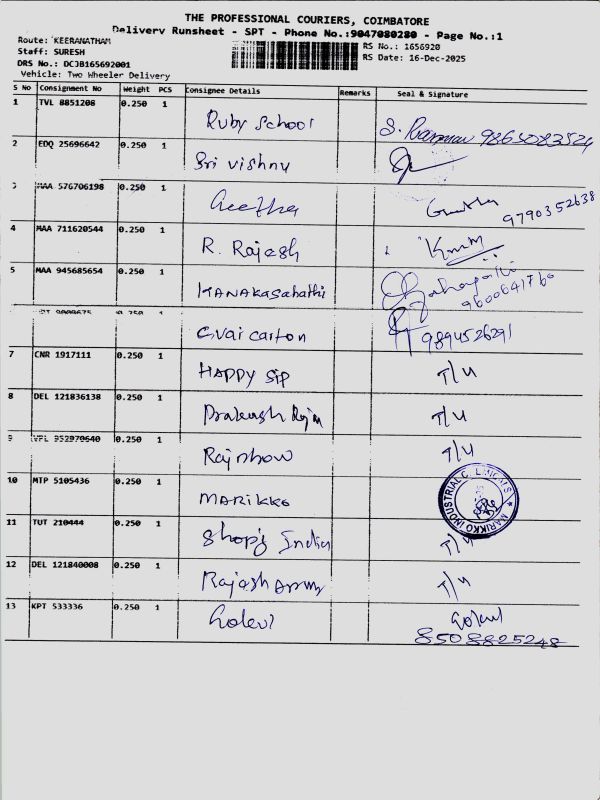 THE PROFESSIONAL COURIERS, COIMBATORE
Delivery Runsheet - SPT - Phone No.:9047080280 - Page No.:1
Route: KEERANATHAM
RS No: 1656920
Staff: SURESH
RS Date: 16-Dec-2025
DRS No.: DCJB165692001
Vehicle: Two Wheeler Delivery
S No Consignment No Weight PCS Consignee Details Remarks Seal & Signature
1 TVL 8851208 0.250 1 Ruby School S. 9865083524
2 EDQ 25696642 0.250 1 Sri Vishnu
3 MAA 576706198 0.250 1 Geetha 9790352638
4 MAA 711620544 0.250 1 R. Rajesh
5 MAA 945685654 0.250 1 KANAKASabathi 9600641760
0.250 1 carton 9894526291
7 CNR 1917111 0.250 1 HAPPY SIP T/U
8 DEL 121836138 0.250 1 T/U
9 VPL 952970640 0.250 1 T/U
10 MTP 5105436 0.250 1 MARIKKO MARIKKO INDUSTRIAL CHEMICALS
11 TUT 210444 0.250 1 India T/U
12 DEL 121840008 0.250 1 Rajesh T/U
13 KPT 533336 0.250 1 Gokul
8508825248